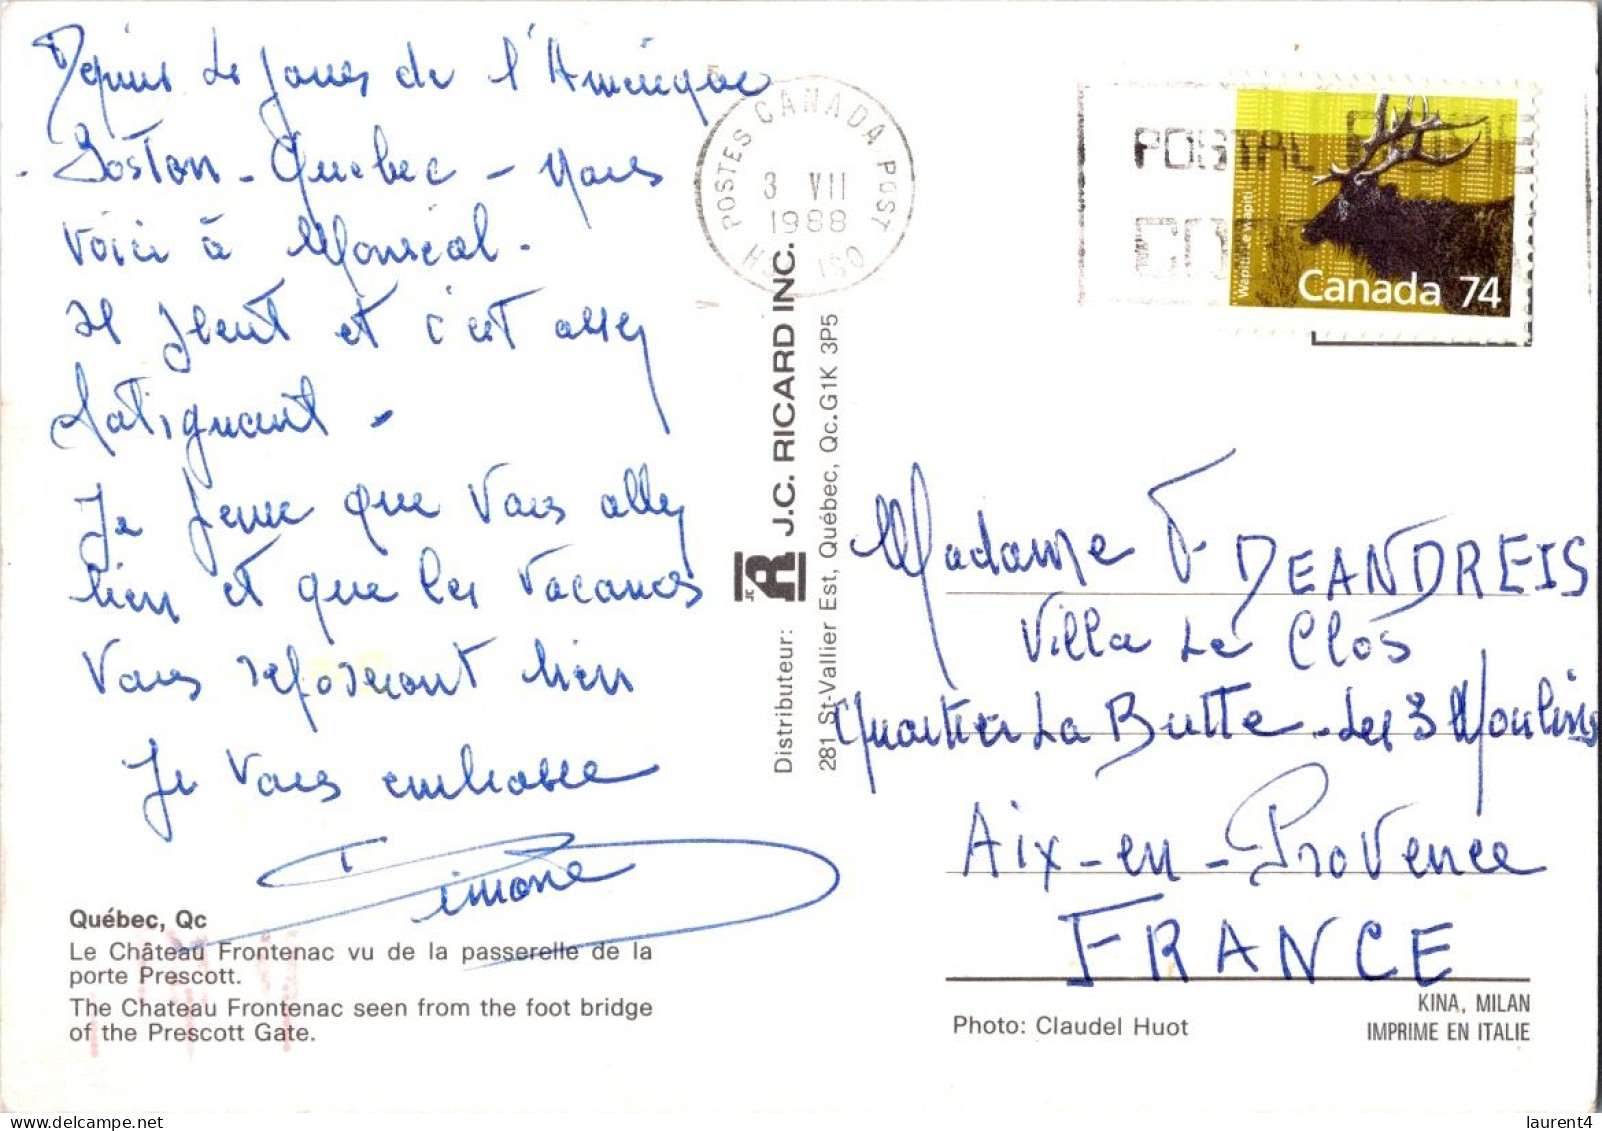 Depuis le jours de l'Amérique
Boston - Quebec - nous
voici à Monréal.
Il pleut et c'est assez
fatiguant -
Je pense que vous allez
bien et que les vacances
vous reposeront bien
Je vous embrasse
Simone
Québec, Qc
Le Château Frontenac vu de la passerelle de la
porte Prescott.
The Chateau Frontenac seen from the foot bridge
of the Prescott Gate.
POSTES CANADA POST
3 VII
1988
Distributeur: J.C. RICARD INC.
281 St-Vallier Est, Québec, Qc. G1K 3P5
POSTAL CODE
Wapiti: Le wapiti
Canada 74
Madame DEANDREIS
Villa Le Clos
Quartier La Butte - Les 3 Moulins
Aix-en-Provence
FRANCE
KINA, MILAN
Photo: Claudel Huot
IMPRIME EN ITALIE
laurent4